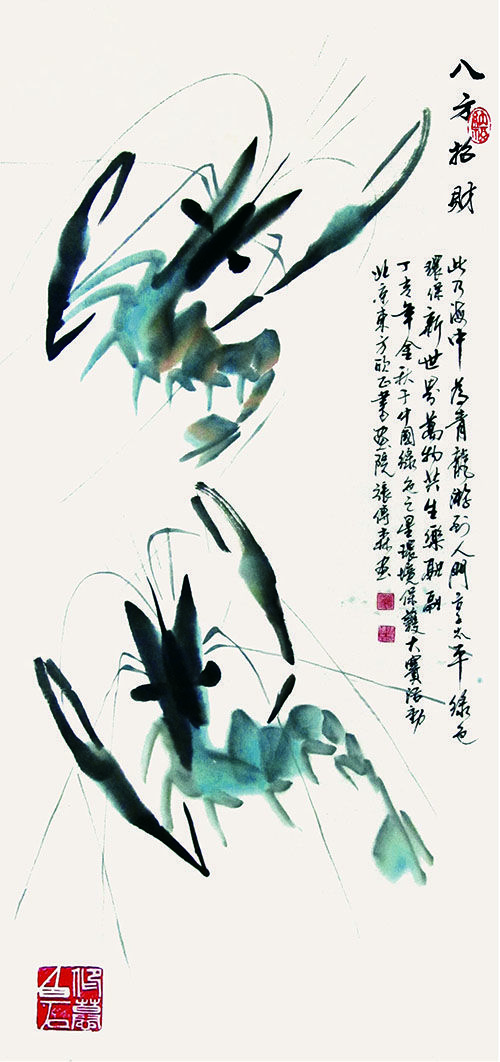 八方招財
此乃海中為青龍游到人門享太平綠色
環保新世界萬物共生樂融融
丁亥年金秋于中國綠色之星環境保護大賽活動
北京東方欣正書画院張傳森画